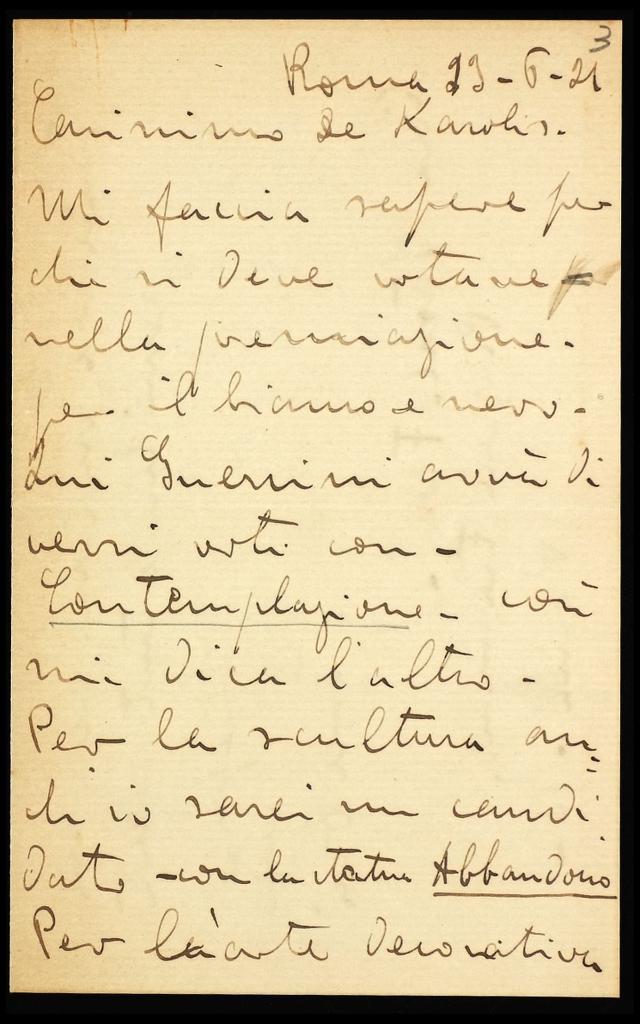 3
Roma 23-6-21
Carissimo De Karolis.
Mi faccia sapere per
chi si deve votare
nella premiazione.
per il bianco e nero.
Qui Guerrini avrà di
versi voti con -
Contemplazione - così
mi dica l'altro -
Per la scultura an=
ch io sarei un candi
dato - con la statua Abbandono
Per l'arte decorativa